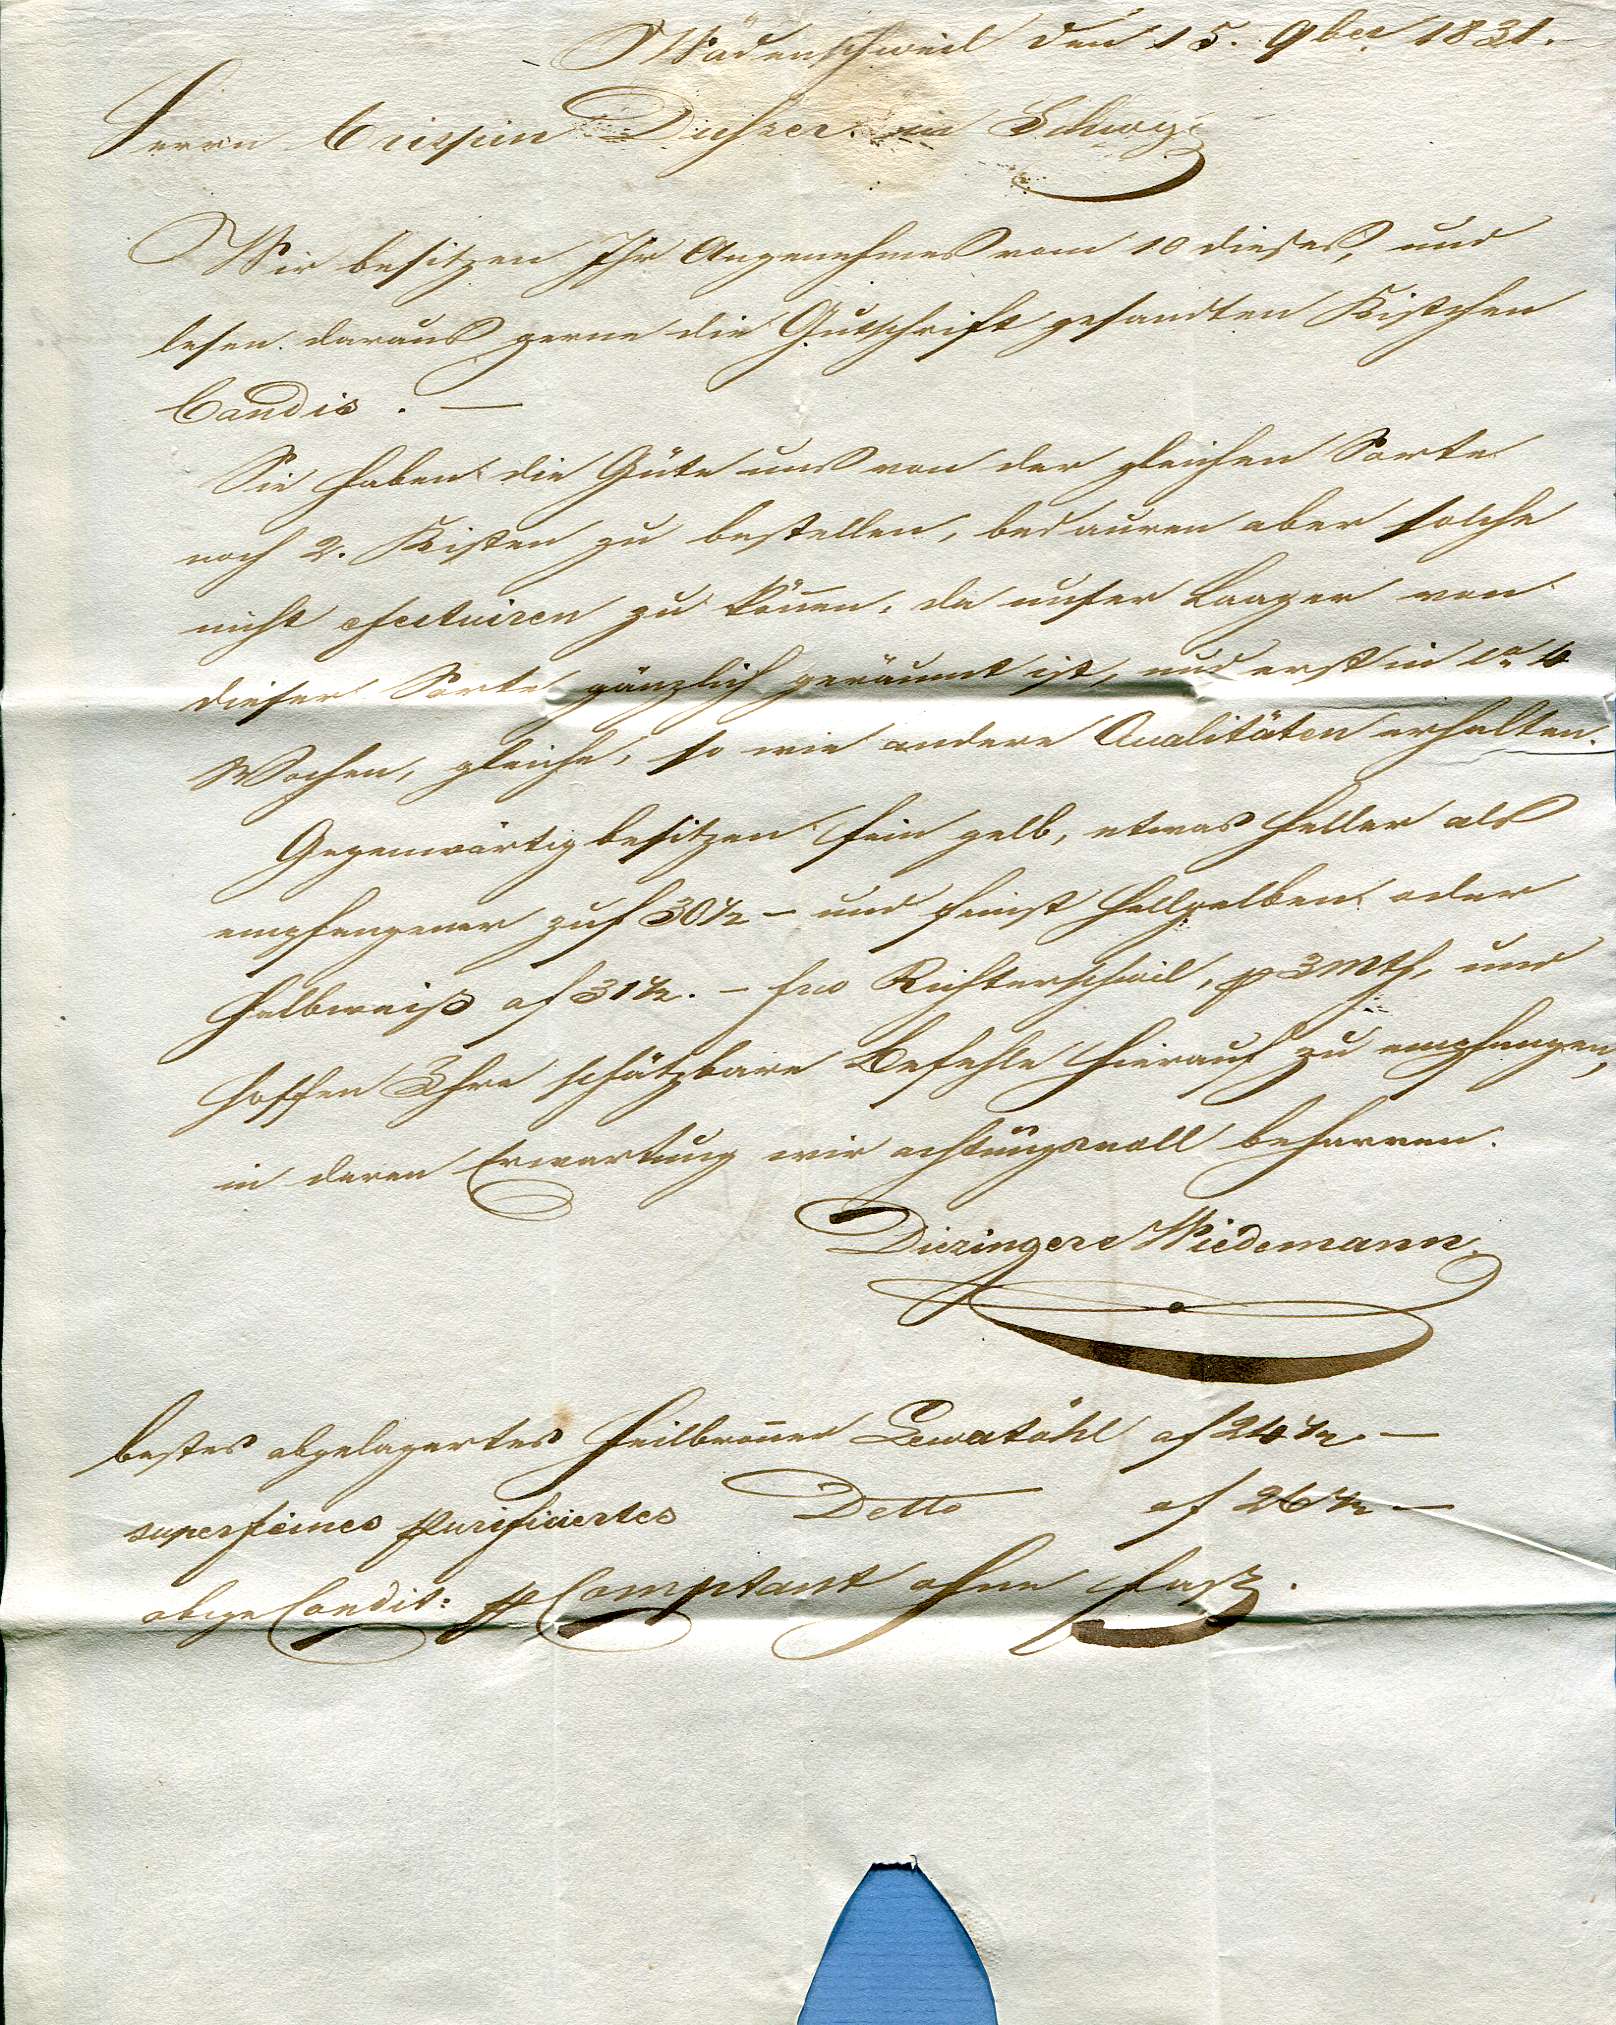 Wädenschweil den 15. 9ber 1831.
Herrn Crispin Dusser. in Schwyz
Wir besitzen Ihr Angenehmes vom 10 dieses, und
lesen daraus gerne die Gutschrift gesandten Kistchen
Candis. —
Sie haben die Güte uns von der gleichen Sorte
noch 2. Kisten zu bestellen, bedauren aber solche
nicht efectuiren zu können, da unser Laager von
dieser Sorte gänzlich geräumt ist, und erst in ca 4
Wochen, gleiche, so wie andere Qualitäten erhalten.
Gegenwärtig besitzen fein gelb, etwas heller als
empfangener zu f 30½ — und feinst hellgelben oder
halbweiß a f 31½. — fco Richterschweil, p 3 Mth, und
hoffen Ihre schätzbare Befehle hierauf zu empfangen,
in deren Erwartung wir achtungsvoll beharren.
Dieringer & Wiedemann.
bestes abgelagertes Heilbronner Lewatöhl a f 24½. —
superfeines purificiertes Detto a f 26½ —
obige Condit: p Comptant ohne Faß.